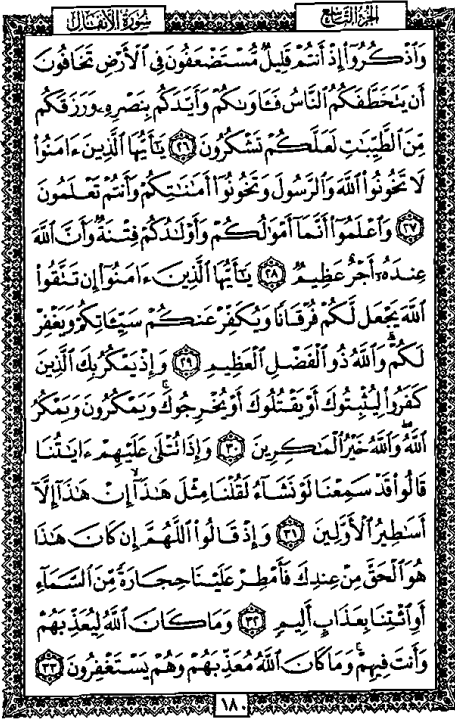 سُورَةُ الأَنفَالِ
الجُزْءُ التَّاسِعُ
وَاذْكُرُوا إِذْ أَنتُمْ قَلِيلٌ مُّسْتَضْعَفُونَ فِي الْأَرْضِ تَخَافُونَ
أَن يَتَخَطَّفَكُمُ النَّاسُ فَـَٔاوَىٰكُمْ وَأَيَّدَكُم بِنَصْرِهِۦ وَرَزَقَكُم
مِّنَ الطَّيِّبَٰتِ لَعَلَّكُمْ تَشْكُرُونَ ٢٦ يَٰٓأَيُّهَا الَّذِينَ ءَامَنُوا
لَا تَخُونُوا اللَّهَ وَالرَّسُولَ وَتَخُونُوٓا أَمَٰنَٰتِكُمْ وَأَنتُمْ تَعْلَمُونَ
٢٧ وَاعْلَمُوٓا أَنَّمَآ أَمْوَٰلُكُمْ وَأَوْلَٰدُكُمْ فِتْنَةٌ وَأَنَّ اللَّهَ
عِندَهُۥٓ أَجْرٌ عَظِيمٌ ٢٨ يَٰٓأَيُّهَا الَّذِينَ ءَامَنُوٓا إِن تَتَّقُوا
اللَّهَ يَجْعَل لَّكُمْ فُرْقَانًا وَيُكَفِّرْ عَنكُمْ سَيِّـَٔاتِكُمْ وَيَغْفِرْ
لَكُمْ ۗ وَاللَّهُ ذُو الْفَضْلِ الْعَظِيمِ ٢٩ وَإِذْ يَمْكُرُ بِكَ الَّذِينَ
كَفَرُوا لِيُثْبِتُوكَ أَوْ يَقْتُلُوكَ أَوْ يُخْرِجُوكَ ۚ وَيَمْكُرُونَ وَيَمْكُرُ
اللَّهُ ۖ وَاللَّهُ خَيْرُ الْمَٰكِرِينَ ٣٠ وَإِذَا تُتْلَىٰ عَلَيْهِمْ ءَايَٰتُنَا
قَالُوا قَدْ سَمِعْنَا لَوْ نَشَآءُ لَقُلْنَا مِثْلَ هَٰذَآ ۙ إِنْ هَٰذَآ إِلَّآ
أَسَٰطِيرُ الْأَوَّلِينَ ٣١ وَإِذْ قَالُوا اللَّهُمَّ إِن كَانَ هَٰذَا
هُوَ الْحَقَّ مِنْ عِندِكَ فَأَمْطِرْ عَلَيْنَا حِجَارَةً مِّنَ السَّمَآءِ
أَوِ ائْتِنَا بِعَذَابٍ أَلِيمٍ ٣٢ وَمَا كَانَ اللَّهُ لِيُعَذِّبَهُمْ
وَأَنتَ فِيهِمْ ۚ وَمَا كَانَ اللَّهُ مُعَذِّبَهُمْ وَهُمْ يَسْتَغْفِرُونَ ٣٣
١٨٠